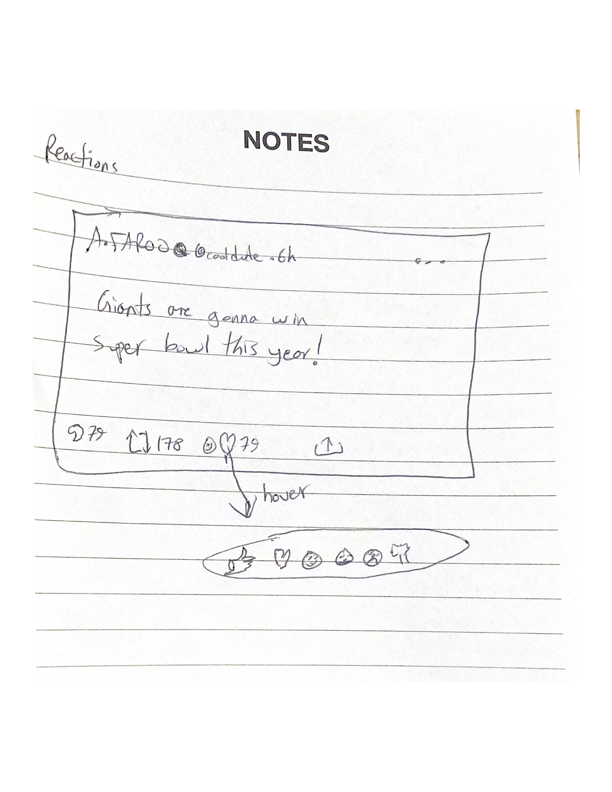 NOTES
Reactions
A.FAROO @cooldude .6h ...
Giants are gonna win
Super bowl this year!
79 178 79
hover